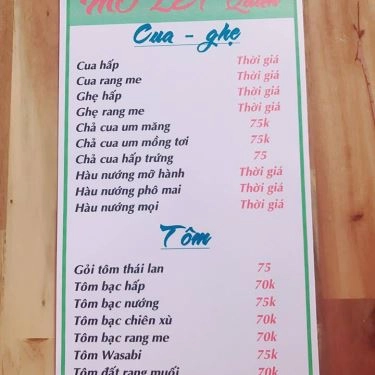 Quán
Cua - ghẹ
Cua hấp Thời giá
Cua rang me Thời giá
Ghẹ hấp Thời giá
Ghẹ rang me Thời giá
Chả cua um măng 75k
Chả cua um mồng tơi 75k
Chả cua hấp trứng 75
Hàu nướng mỡ hành Thời giá
Hàu nướng phô mai Thời giá
Hàu nướng mọi Thời giá
Tôm
Gỏi tôm thái lan 75
Tôm bạc hấp 70k
Tôm bạc nướng 75k
Tôm bạc chiên xù 70k
Tôm bạc rang me 70k
Tôm Wasabi 75k
Tôm đất rang muối 70k